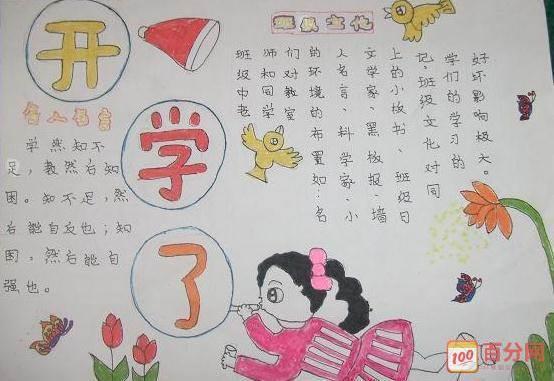 开
学
了
班级文化
名人名言
学然知不
足，教然后知
困。知不足，然
后能自反也；知
困，然后能自
强也。
班级中老
师和同学
们对教室
的环境的布置如：名
人名言、料学家、小
文学家、黑板报、墙
上的小板书、班级日
记，班级文化对同
学们的学习的
好坏影响极大。
100 百分网